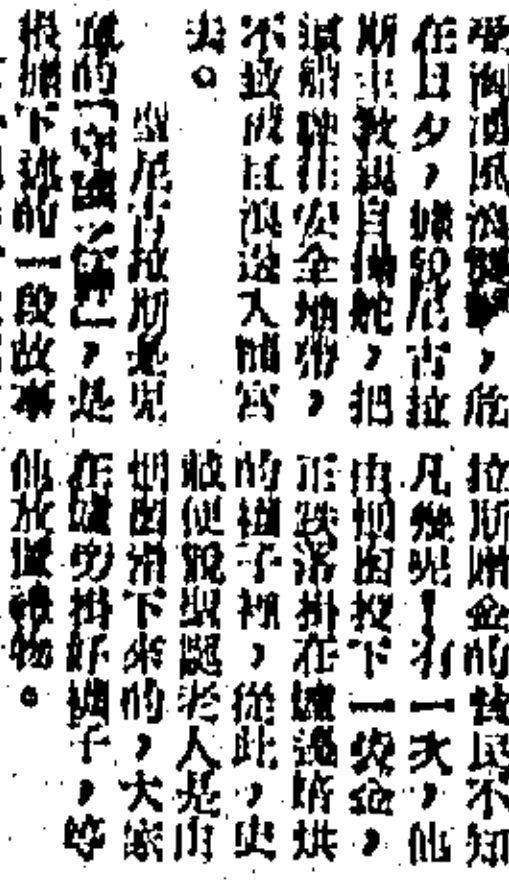 受海濤風浪襲擊，危
在旦夕，纔發尼古拉
斯主教親自掌舵，把
這艘駛往安全地帶，
不致被狂浪送入龍宮
去。
聖尼古拉斯是兒
童的「守護之神」，是
根據下述的一段故事
拉斯贈金的貧民不知
凡幾呢！有一次，他
由烟囱投下一袋金，
正跌落掛在爐邊焙烘
的襪子裡，從此，史
戴便說聖誕老人是由
烟囱滑下來的，大家
在爐旁掛好襪子，等
他放置禮物。